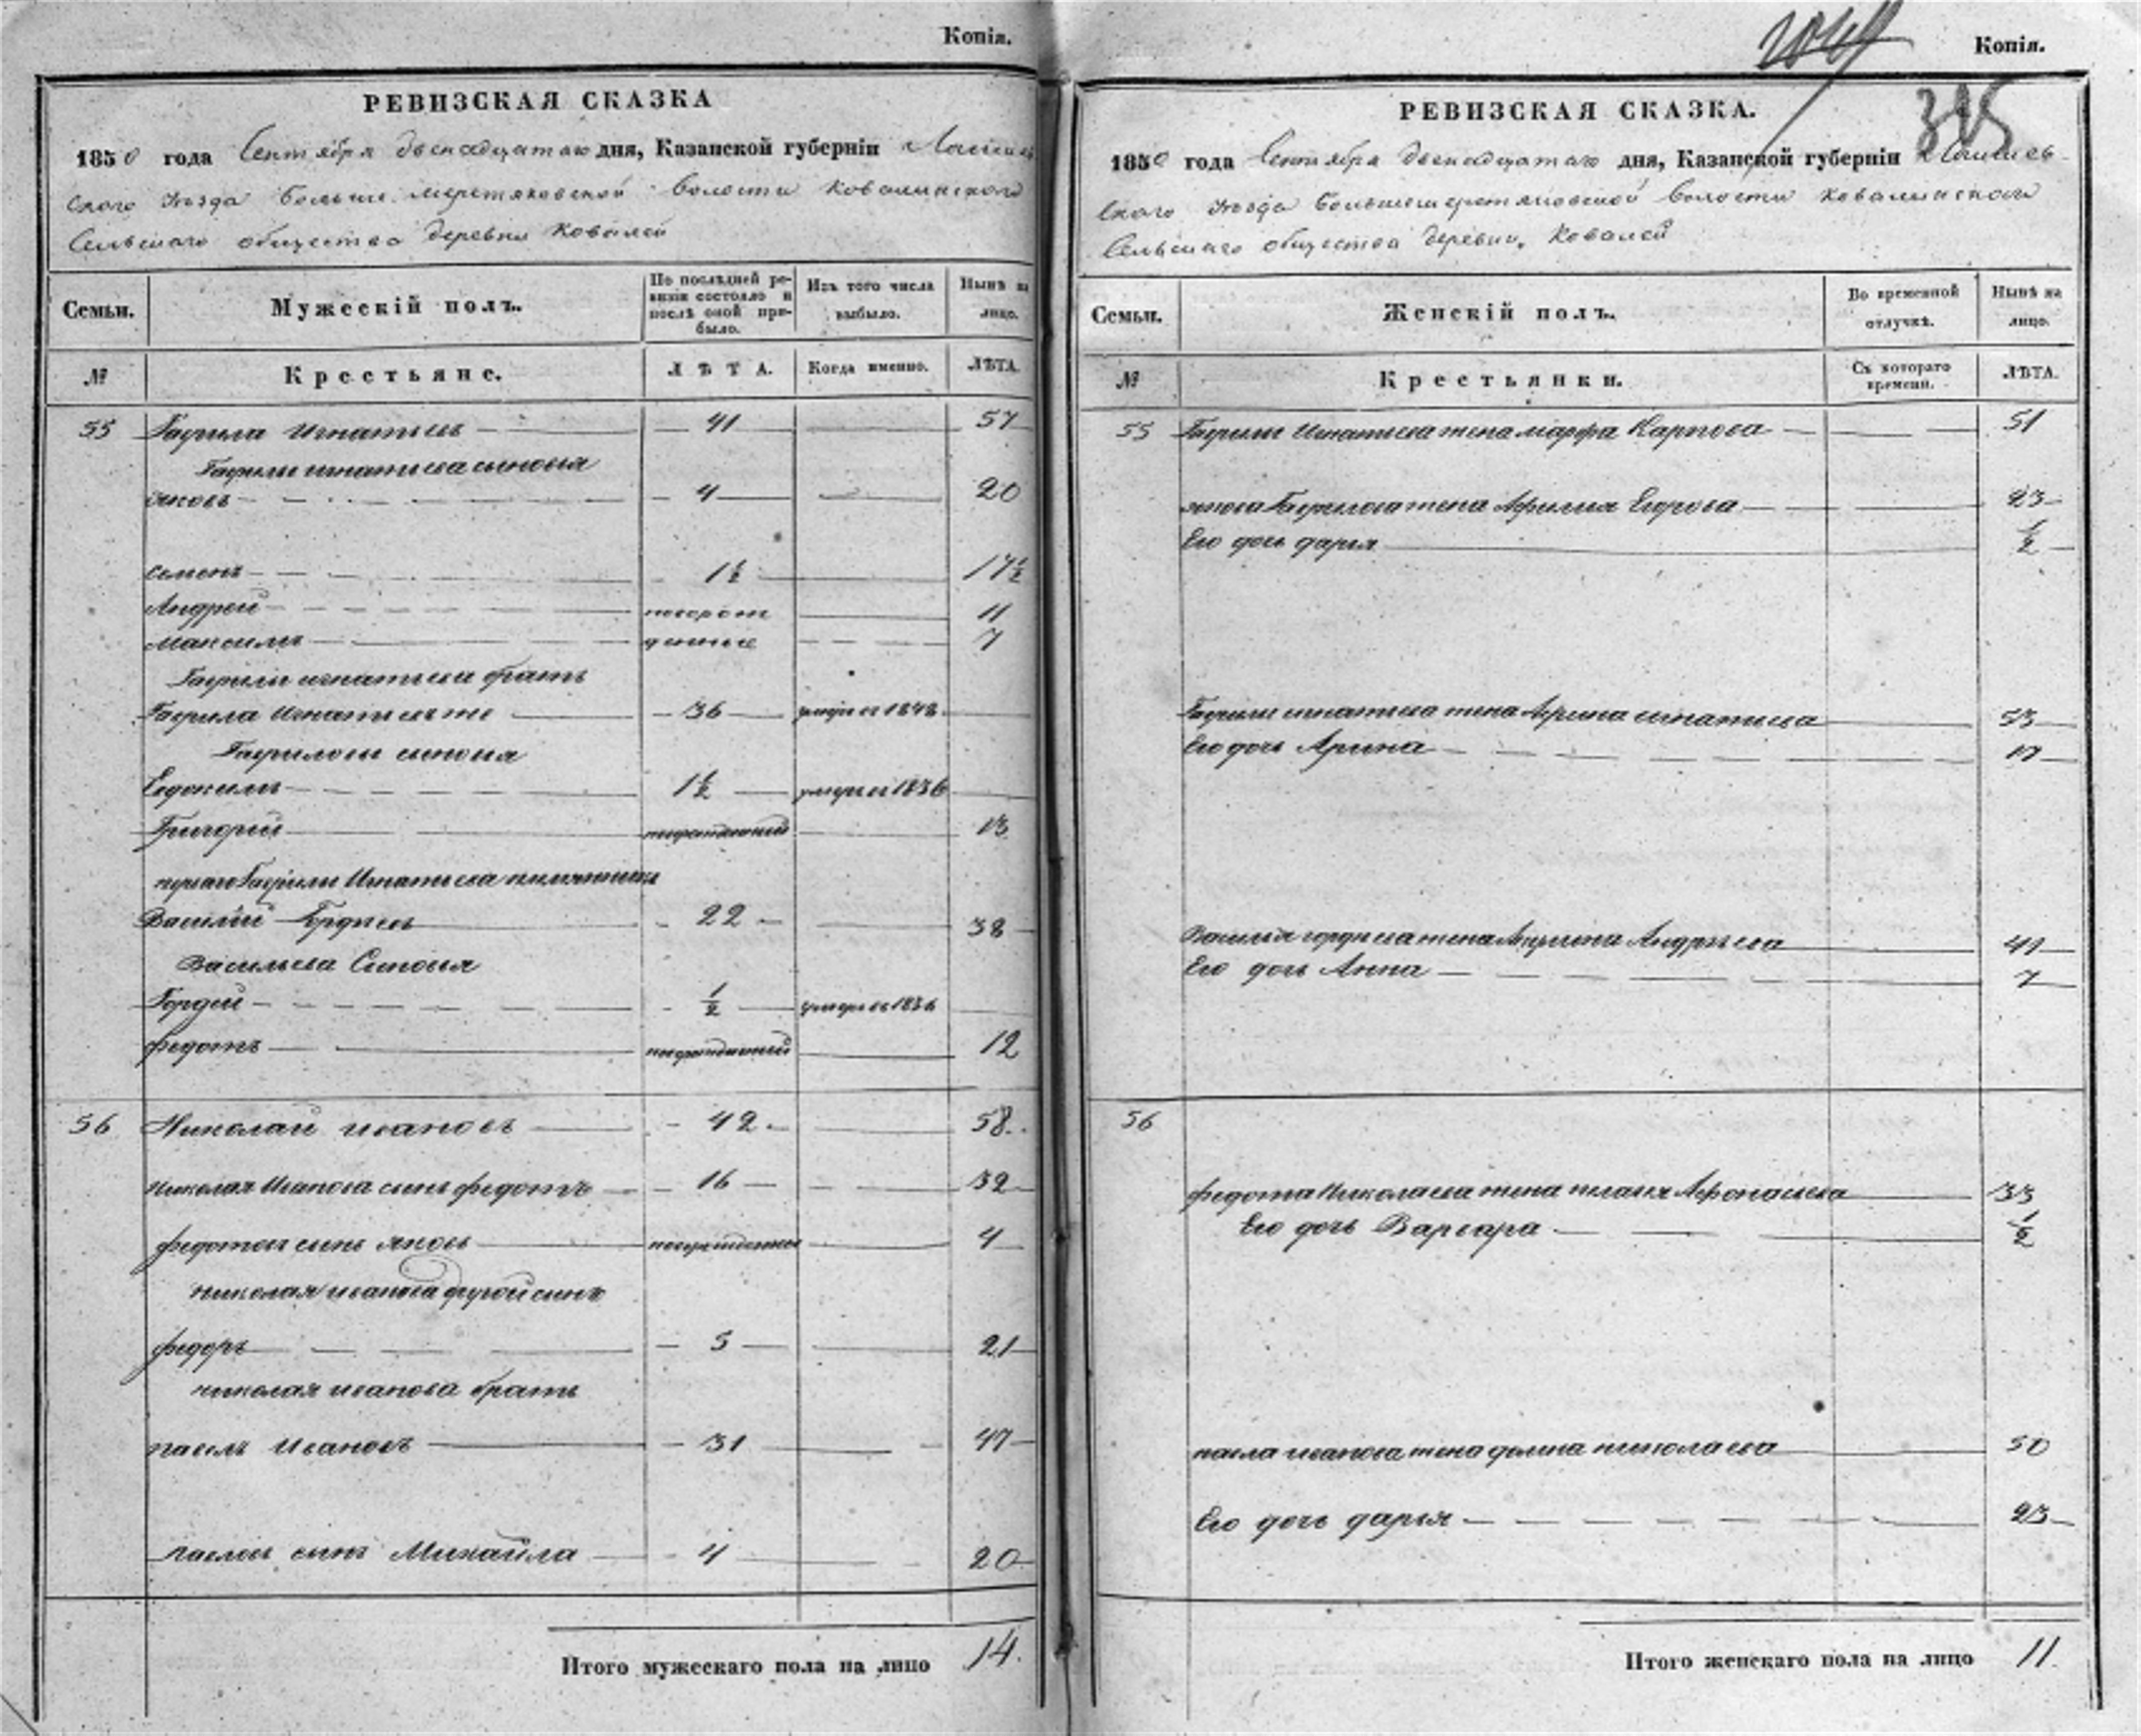 Копія.
РЕВИЗСКАЯ СКАЗКА
1850 года Сентября двенадцатаго дня, Казанской губерніи Лаишев
скаго уѣзда Больше меретяковской волости Ковалинскаго
Сельскаго общества деревни Ковалей
Семьи. Мужескій полъ. По послѣдней ревизіи состояло и послѣ оной прибыло. Изъ того числа выбыло. Нынѣ на лицо.
№ Крестьяне. ЛѢТА. Когда именно. ЛѢТА.
55 Гаврила Игнатьевъ 41 57
Гаврилы игнатьева сыновья
яковъ 4 20
семенъ 1½ 17½
Андрей новорож 11
максимъ денные 7
Гаврилы игнатьева братъ
Гаврила Игнатьевъ же 36 умре въ 1848
Гавриловы сыновья
Евдокимъ 1½ умре въ 1836
Григорий новорожденный 13
перваго Гаврилы Игнатьева племянник
Василий Гордеевъ 22 38
Васильева Сыновья
Гордей ½ умре въ 1836
федотъ новорожденный 12
56 Николай ивановъ 42 58
николая Иванова сынъ федотъ 16 32
федотов сынъ яковъ новорожденные 4
николая иванова другой сынъ
федоръ 5 21
николая иванова братъ
павелъ Ивановъ 31 47
павлов сынъ Михайла 4 20
Итого мужескаго пола на лицо 14.
Копія.
315
РЕВИЗСКАЯ СКАЗКА.
1850 года Сентября двенадцатаго дня, Казанской губерніи Лаишев
скаго уѣзда Большемеретяковской волости Ковалинскаго
Сельскаго общества деревни Ковалей
Семьи. Женскій полъ. Во временной отлучкѣ. Нынѣ на лицо.
№ Крестьянки. Съ котораго времени. ЛѢТА.
55 Гаврилы Игнатьева жена марфа Карпова 51
якова Гаврилова жена Афимия Егорова 23
Его дочь дарья ½
Гаврилы игнатьева жена Арина игнатьева 53
Его дочь Арина 17
Василья гордеева жена Акулина Андреева 41
Его дочь Анна 7
56
федота Николаева жена пелагея Афонасьева 33
Его дочь Варвара ½
павла иванова жена домна николаева 50
Его дочь дарья 23
Итого женскаго пола на лицо 11.